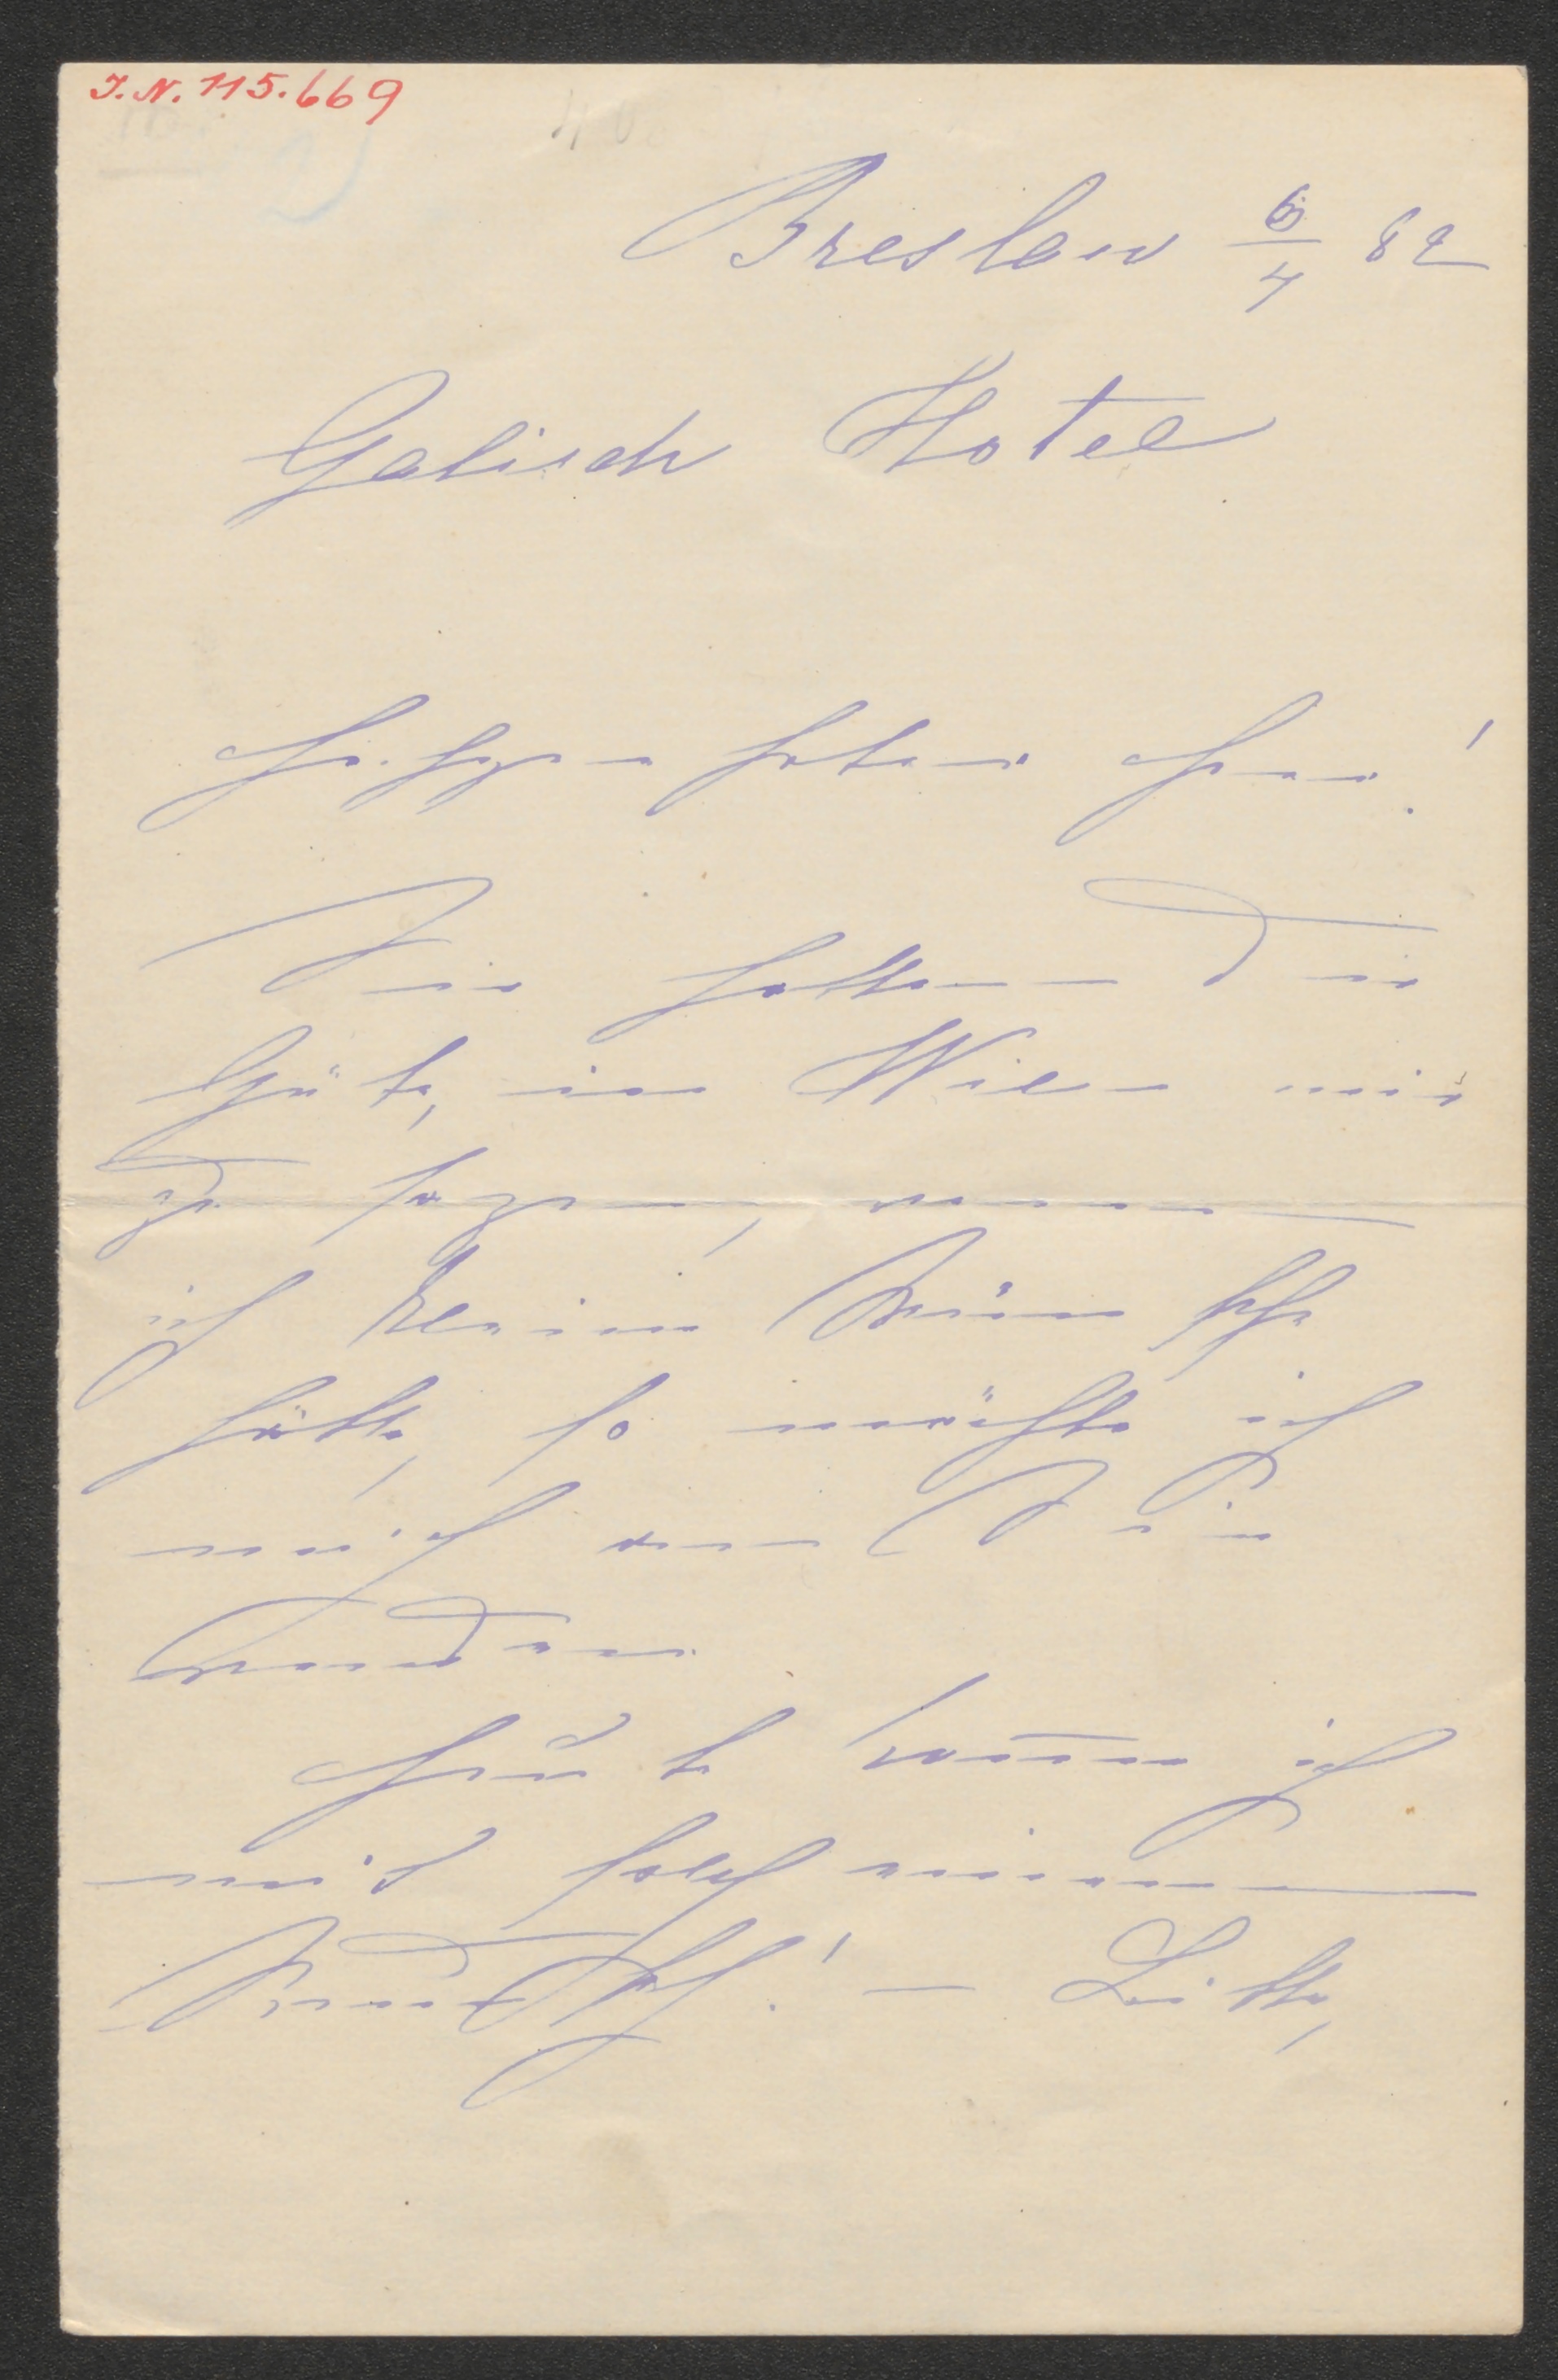 J.N. 115.669
Breslau 6/4 82
Galisch Hotel
Hochgeehrter Herr!
Sie hatten die
Güte, in Wien mir
zu sagen, wenn
ich einen Wunsch
hätte, so möchte ich
mich an Sie
wenden.
Heute komm̅ ich
mit solch einem
Wunsch! – Bitte,